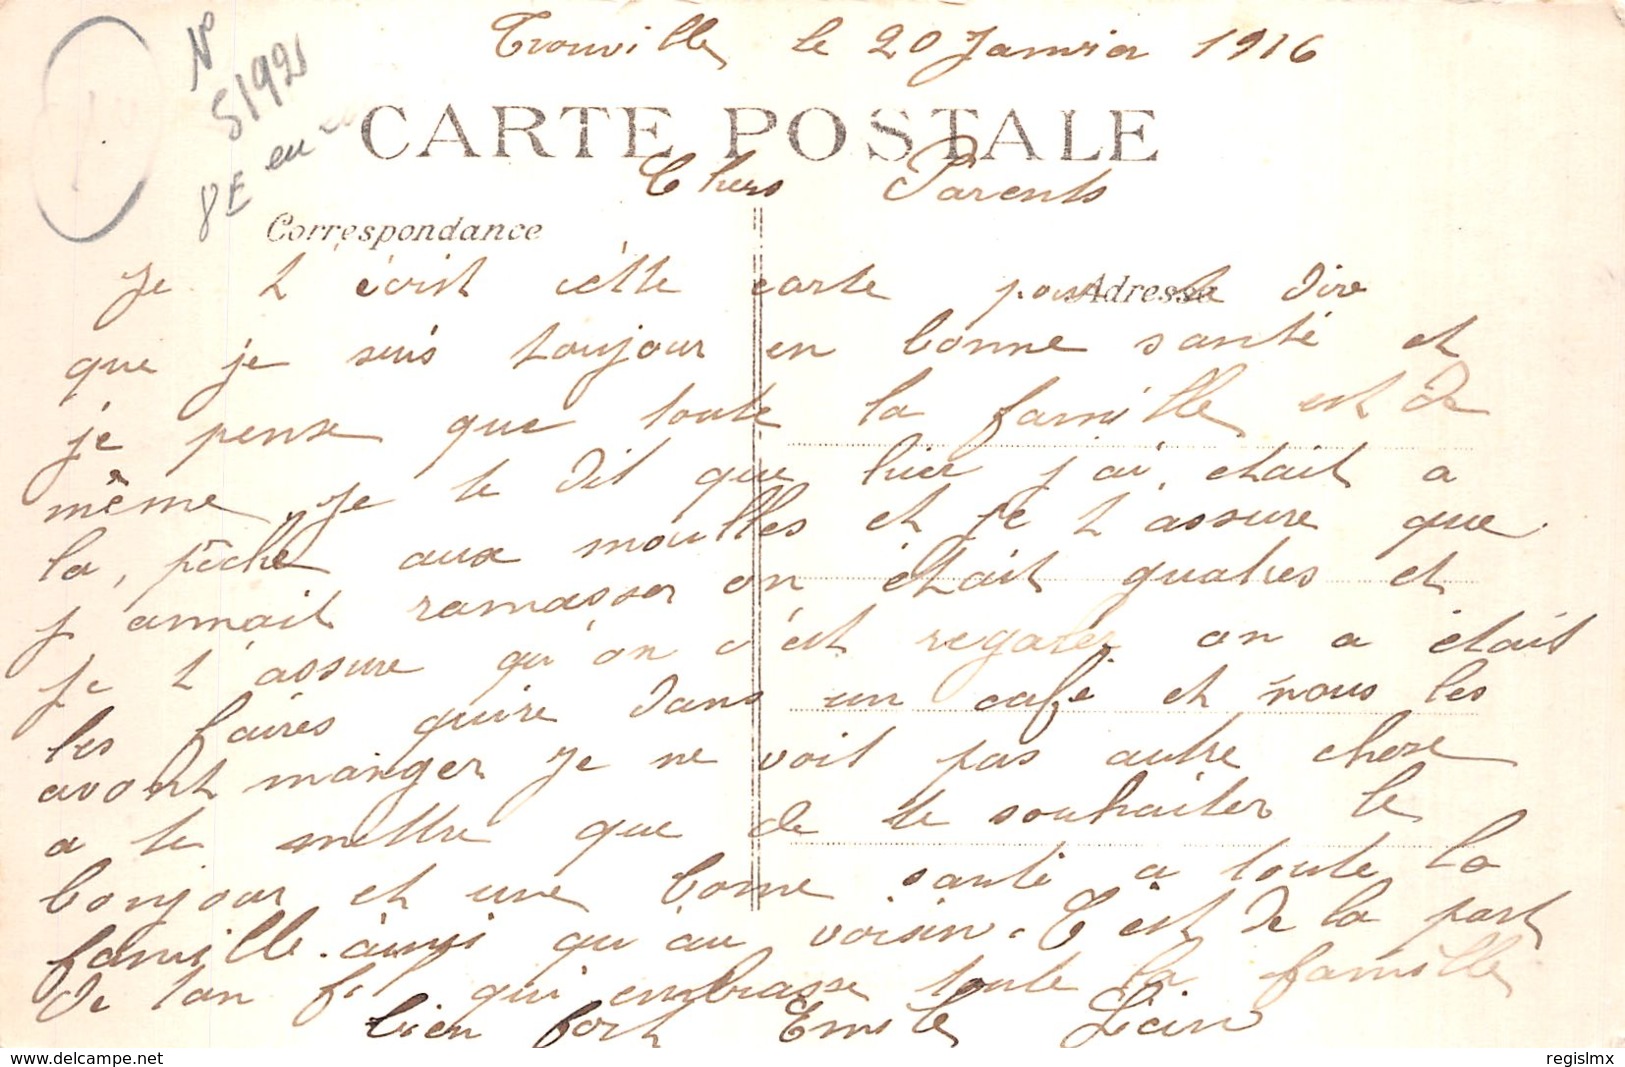 Trouville le 20 Janvier 1916
N°
51921
8E en
CARTE POSTALE
Chers Parents
Correspondance
Adresse
Je t'écrit cètte carte pour te dire
que je suis toujour en bonne santé et
je pense que toute la famille est de
même, je te dit que hier j'ai, etait a
la, pêche aux moulles et je t'assure que
j'annait ramasser on était quatres et
je t'assure qu'on c'est regaler on a était
les faires quire dans un cafe et nous les
avont manger je ne voit pas autre chose
a te mettre que de te souhaiter le
bonjour et une bonne santé a toute la
famille. ainsi qu'au voisin. C'est de la part
de ton fi qui embrasse toute la famille
bien fort Emile
delcampe.net
regislmx